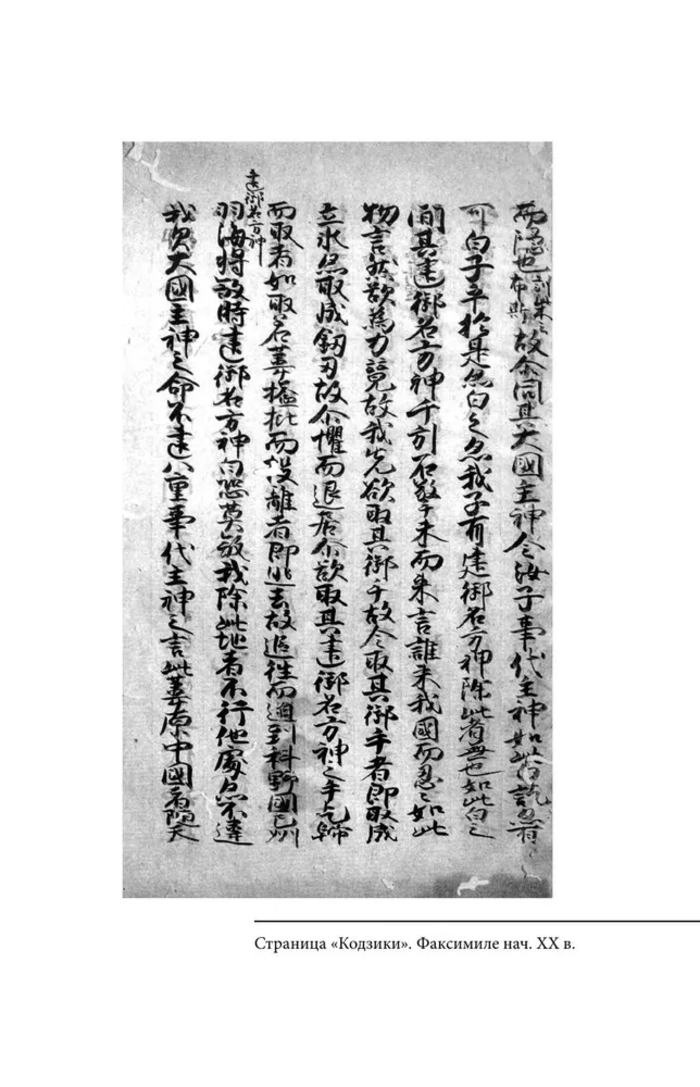 而隠也訓柴云布斯故尒問其大國主神今汝子事代主神如此白訖
可白子乎於是亦白之亦我子有建御名方神除此者無也如此白之
間其建御名方神千引石敬手末而来言誰来我國而忍々如此
物言然欲為力競故我先欲取其御手故令取其御手者即取成
立氷亦取成釼刃故尒懼而退居尒欲取其建御名方神之手乞歸
而取者如取若葦搤批而投離者即逃去故追往而迫到科野國之州
建御名方神
羽海将敬時建御名方神白恐莫敬我除此地者不行他處亦不違
我父大國主神之命不違八重事代主神之言此葦原中國者随天
Страница «Кодзики». Факсимиле нач. XX в.